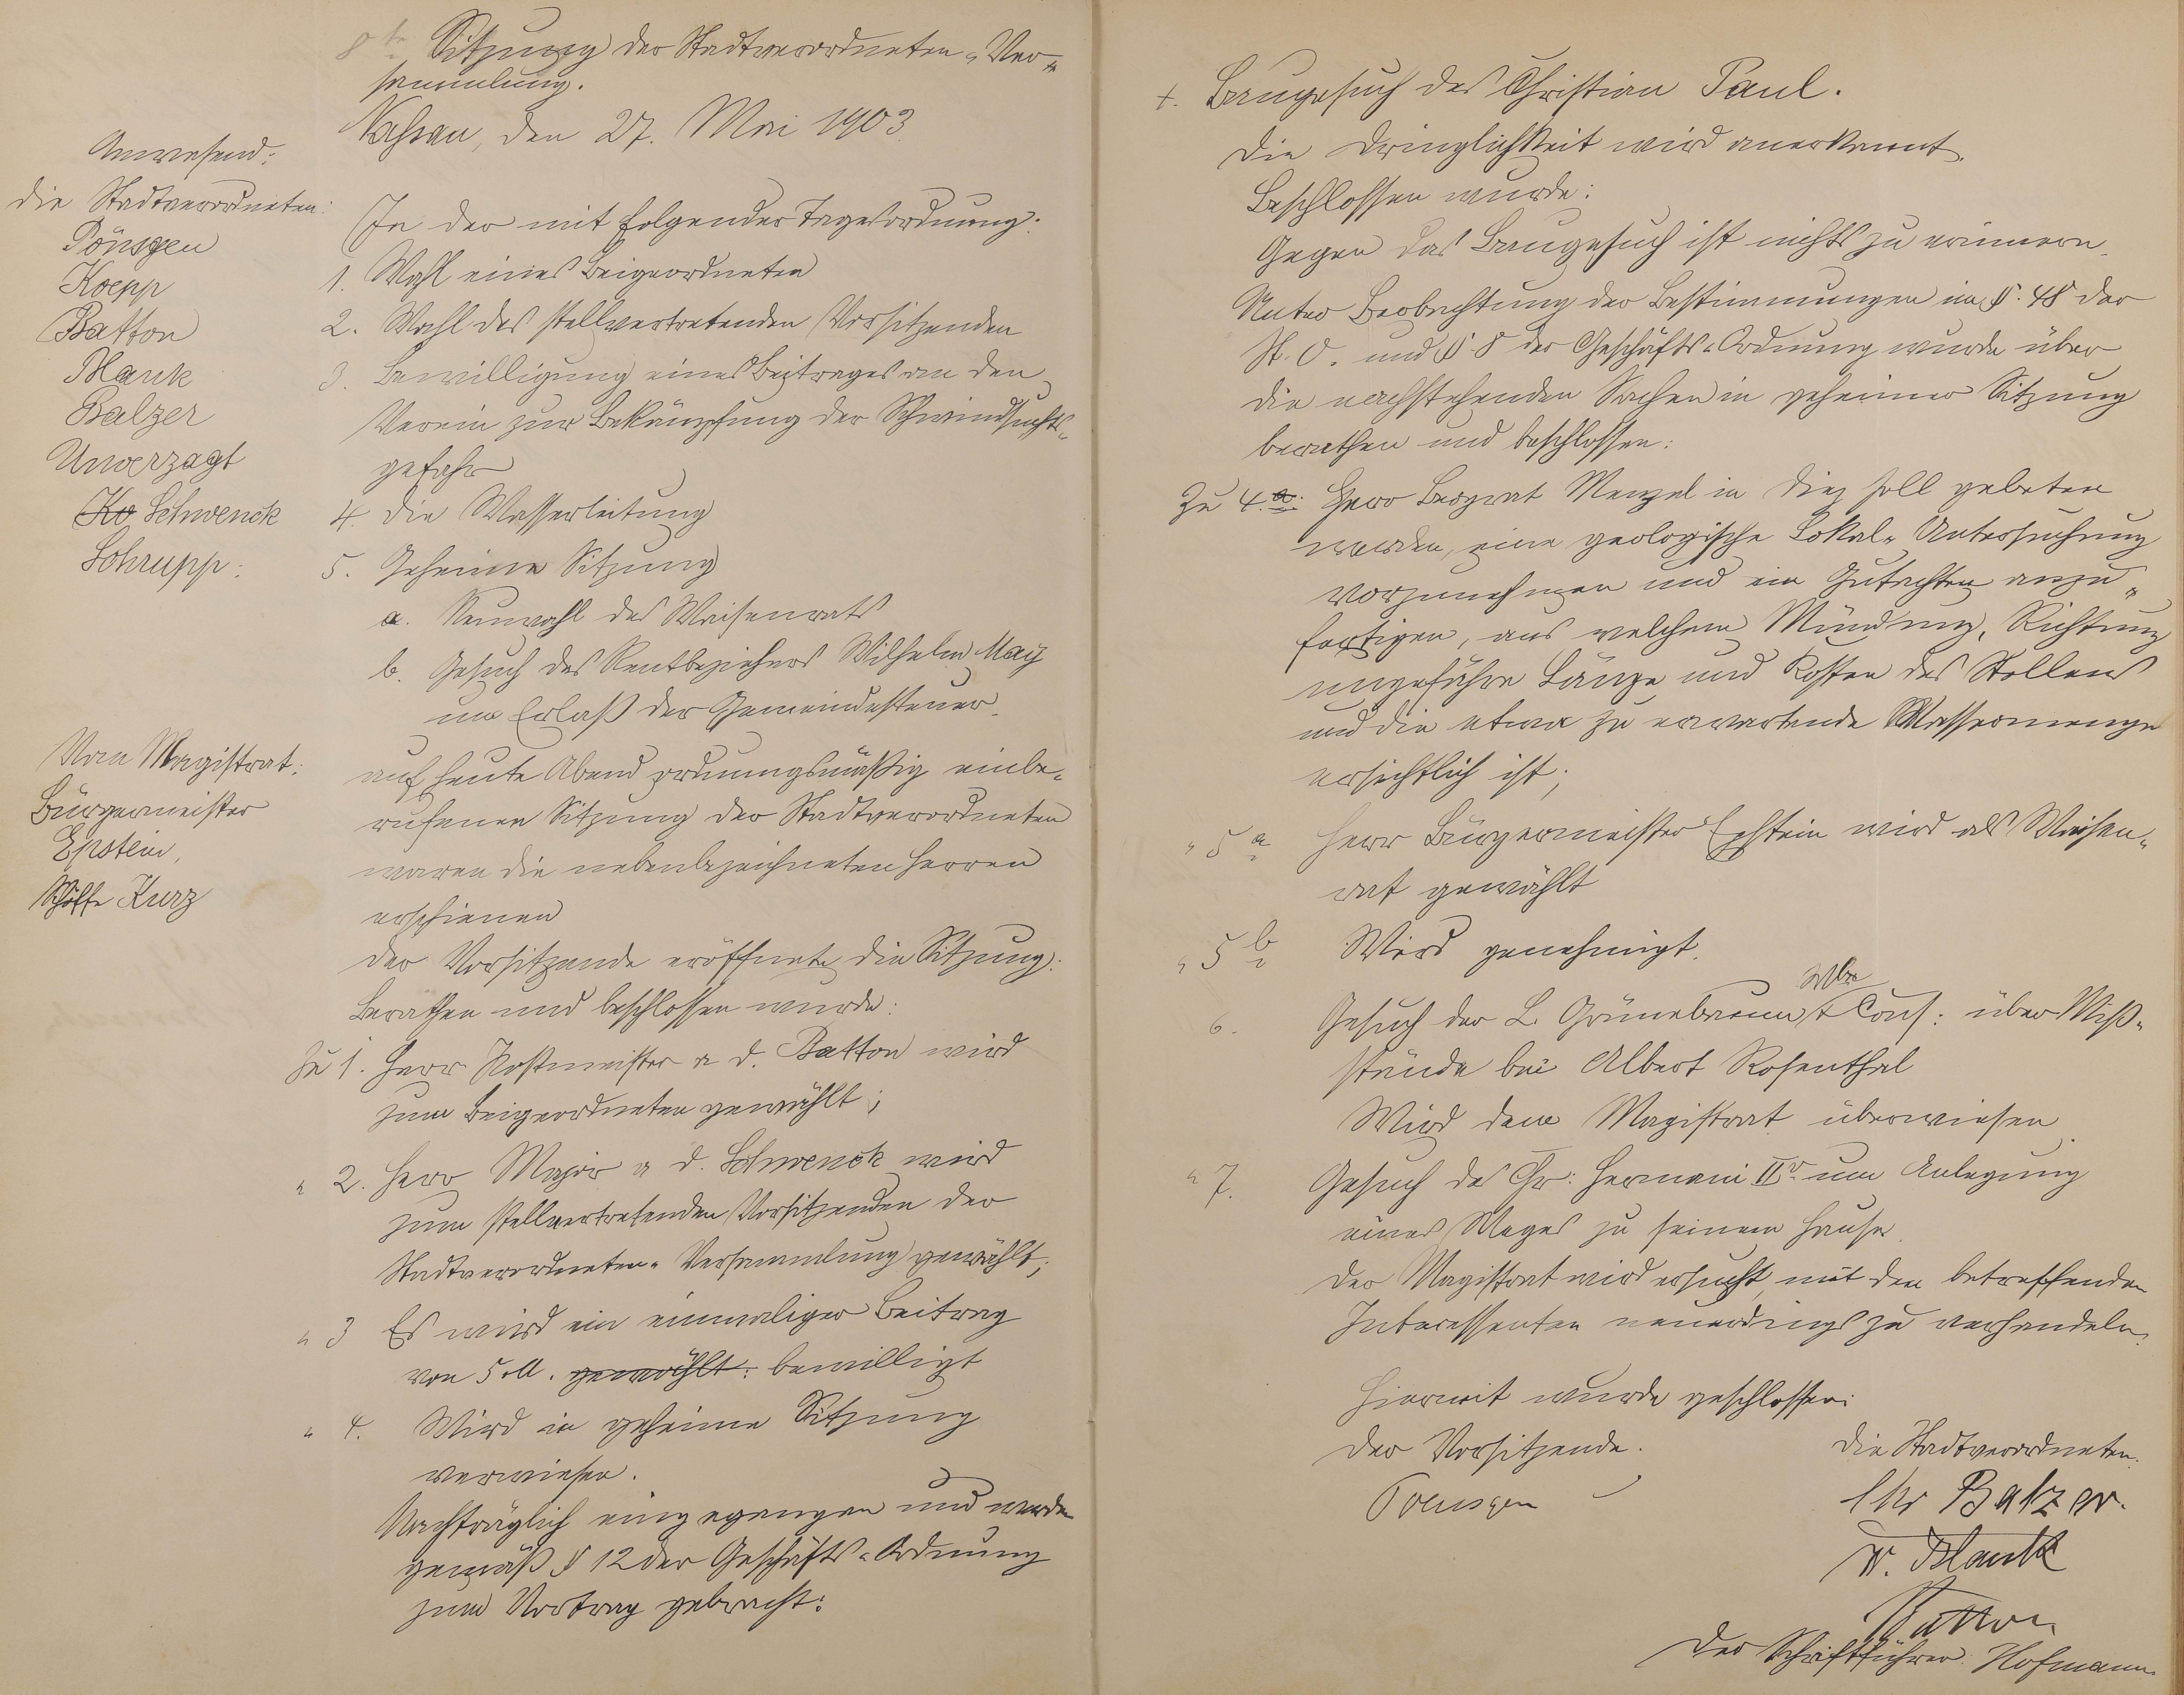 8te Sitzung der Stadtverordneten-Ver-
sammlung.
Nassau, den 27. Mai 1903.
Anwesend:
die Stadtverordneten:
Pönsgen
Koepp
Batton
Blank
Balzer
Unverzagt
Ko Schwenck
Schrupp:
Vom Magistrat:
Bürgermeister
Epstein,
Schöffe Kurz
In der mit folgender Tagesordnung:
1. Wahl eines Beigeordneten
2. Wahl des stellvertretenden Vorsitzenden
3. Bewilligung eines Beitrages an den
Verein zur Bekämpfung der Schwindsuchts-
gefahr
4. Die Wasserleitung
5. Geheime Sitzung
a. Neuwahl des Waisenrats
b. Gesuch des Rentbeziehers Wilhelm May
um Erlaß der Gemeindesteuer.
auf heute Abend ordnungsmäßig einbe-
rufenen Sitzung der Stadtverordneten
waren die nebenbezeichneten Herren
erschienen
Der Vorsitzende eröffnete die Sitzung:
Berathen und beschlossen wurde:
Zu 1. Herr Postmeister a d. Batton wird
zum Beigeordneten gewählt;
" 2. Herr Major a d. Schwenck wird
zum stellvertretenden Vorsitzenden der
Stadtverordneten-Versammlung gewählt;
" 3 Es wird ein einmaliger Beitrag
von 5 M. gewählt: bewilligt
" 4. Wird in geheime Sitzung
verwiesen.
Nachträglich eingegangen und werden
gemäß § 12 der Geschäfts-Ordnung
zum Vortrag gebracht:
+. Baugesuch des Christian Paul.
Die Dringlichkeit wird anerkannt.
Beschlossen wurde:
Gegen das Baugesuch ist nichts zu erinnern.
Unter Beobachtung der Bestimmungen im §. 48 der
St. O. und § 8 der Geschäfts-Ordnung wurde über
die nachstehenden Sachen in geheimer Sitzung
berathen und beschlossen:
Zu 4. a. Herr Bergrat Menzel in Diez soll gebeten
werden, eine geologische Lokal-Untersuchung
vorzunehmen und ein Gutachten anzu-
fertigen, aus welchem Mündung, Richtung
ungefähre Länge und Kosten des Stollens
und die etwa zu erwartende Wassermenge
ersichtlich ist;
" 5 a Herr Bürgermeister Epstein wird als Waisen-
rat gewählt
" 5 b Wird genehmigt.
6. Gesuch der L. Grünebaum Wwe & Cons: über Miß-
stände bei Albert Rosenthal
Wird dem Magistrat überwiesen.
" 7. Gesuch des Chr: Hermani IIr um Anlegung
eines Weges zu seinem Hause.
Der Magistrat wird ersucht, mit den betreffenden
Interessenten neuerdings zu verhandeln.
Hiermit wurde geschlossen:
Der Vorsitzende.
Poensgen
Die Stadtverordneten.
Chr Balzer.
W. Blank
Batton
Der Schriftführer: Hofmann.